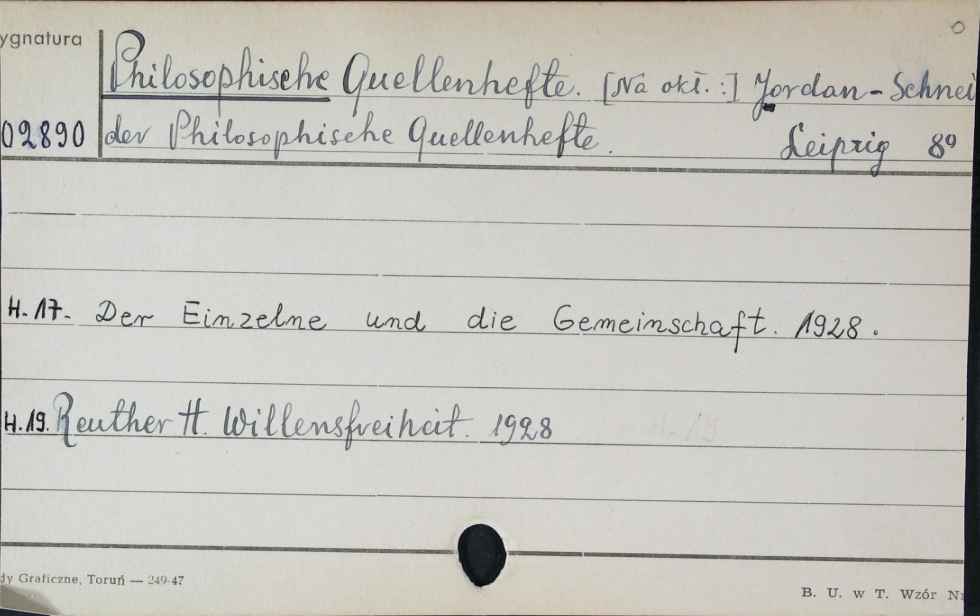 ygnatura
Philosophische Quellenhefte. [Na okł.:] Jordan-Schnei
02890 der Philosophische Quellenhefte. Leipzig 8º
H. 17. Der Einzelne und die Gemeinschaft. 1928.
H. 19. Reuther H. Willensfreiheit. 1928
dy Graficzne, Toruń — 249-47
B. U. w T. Wzór N